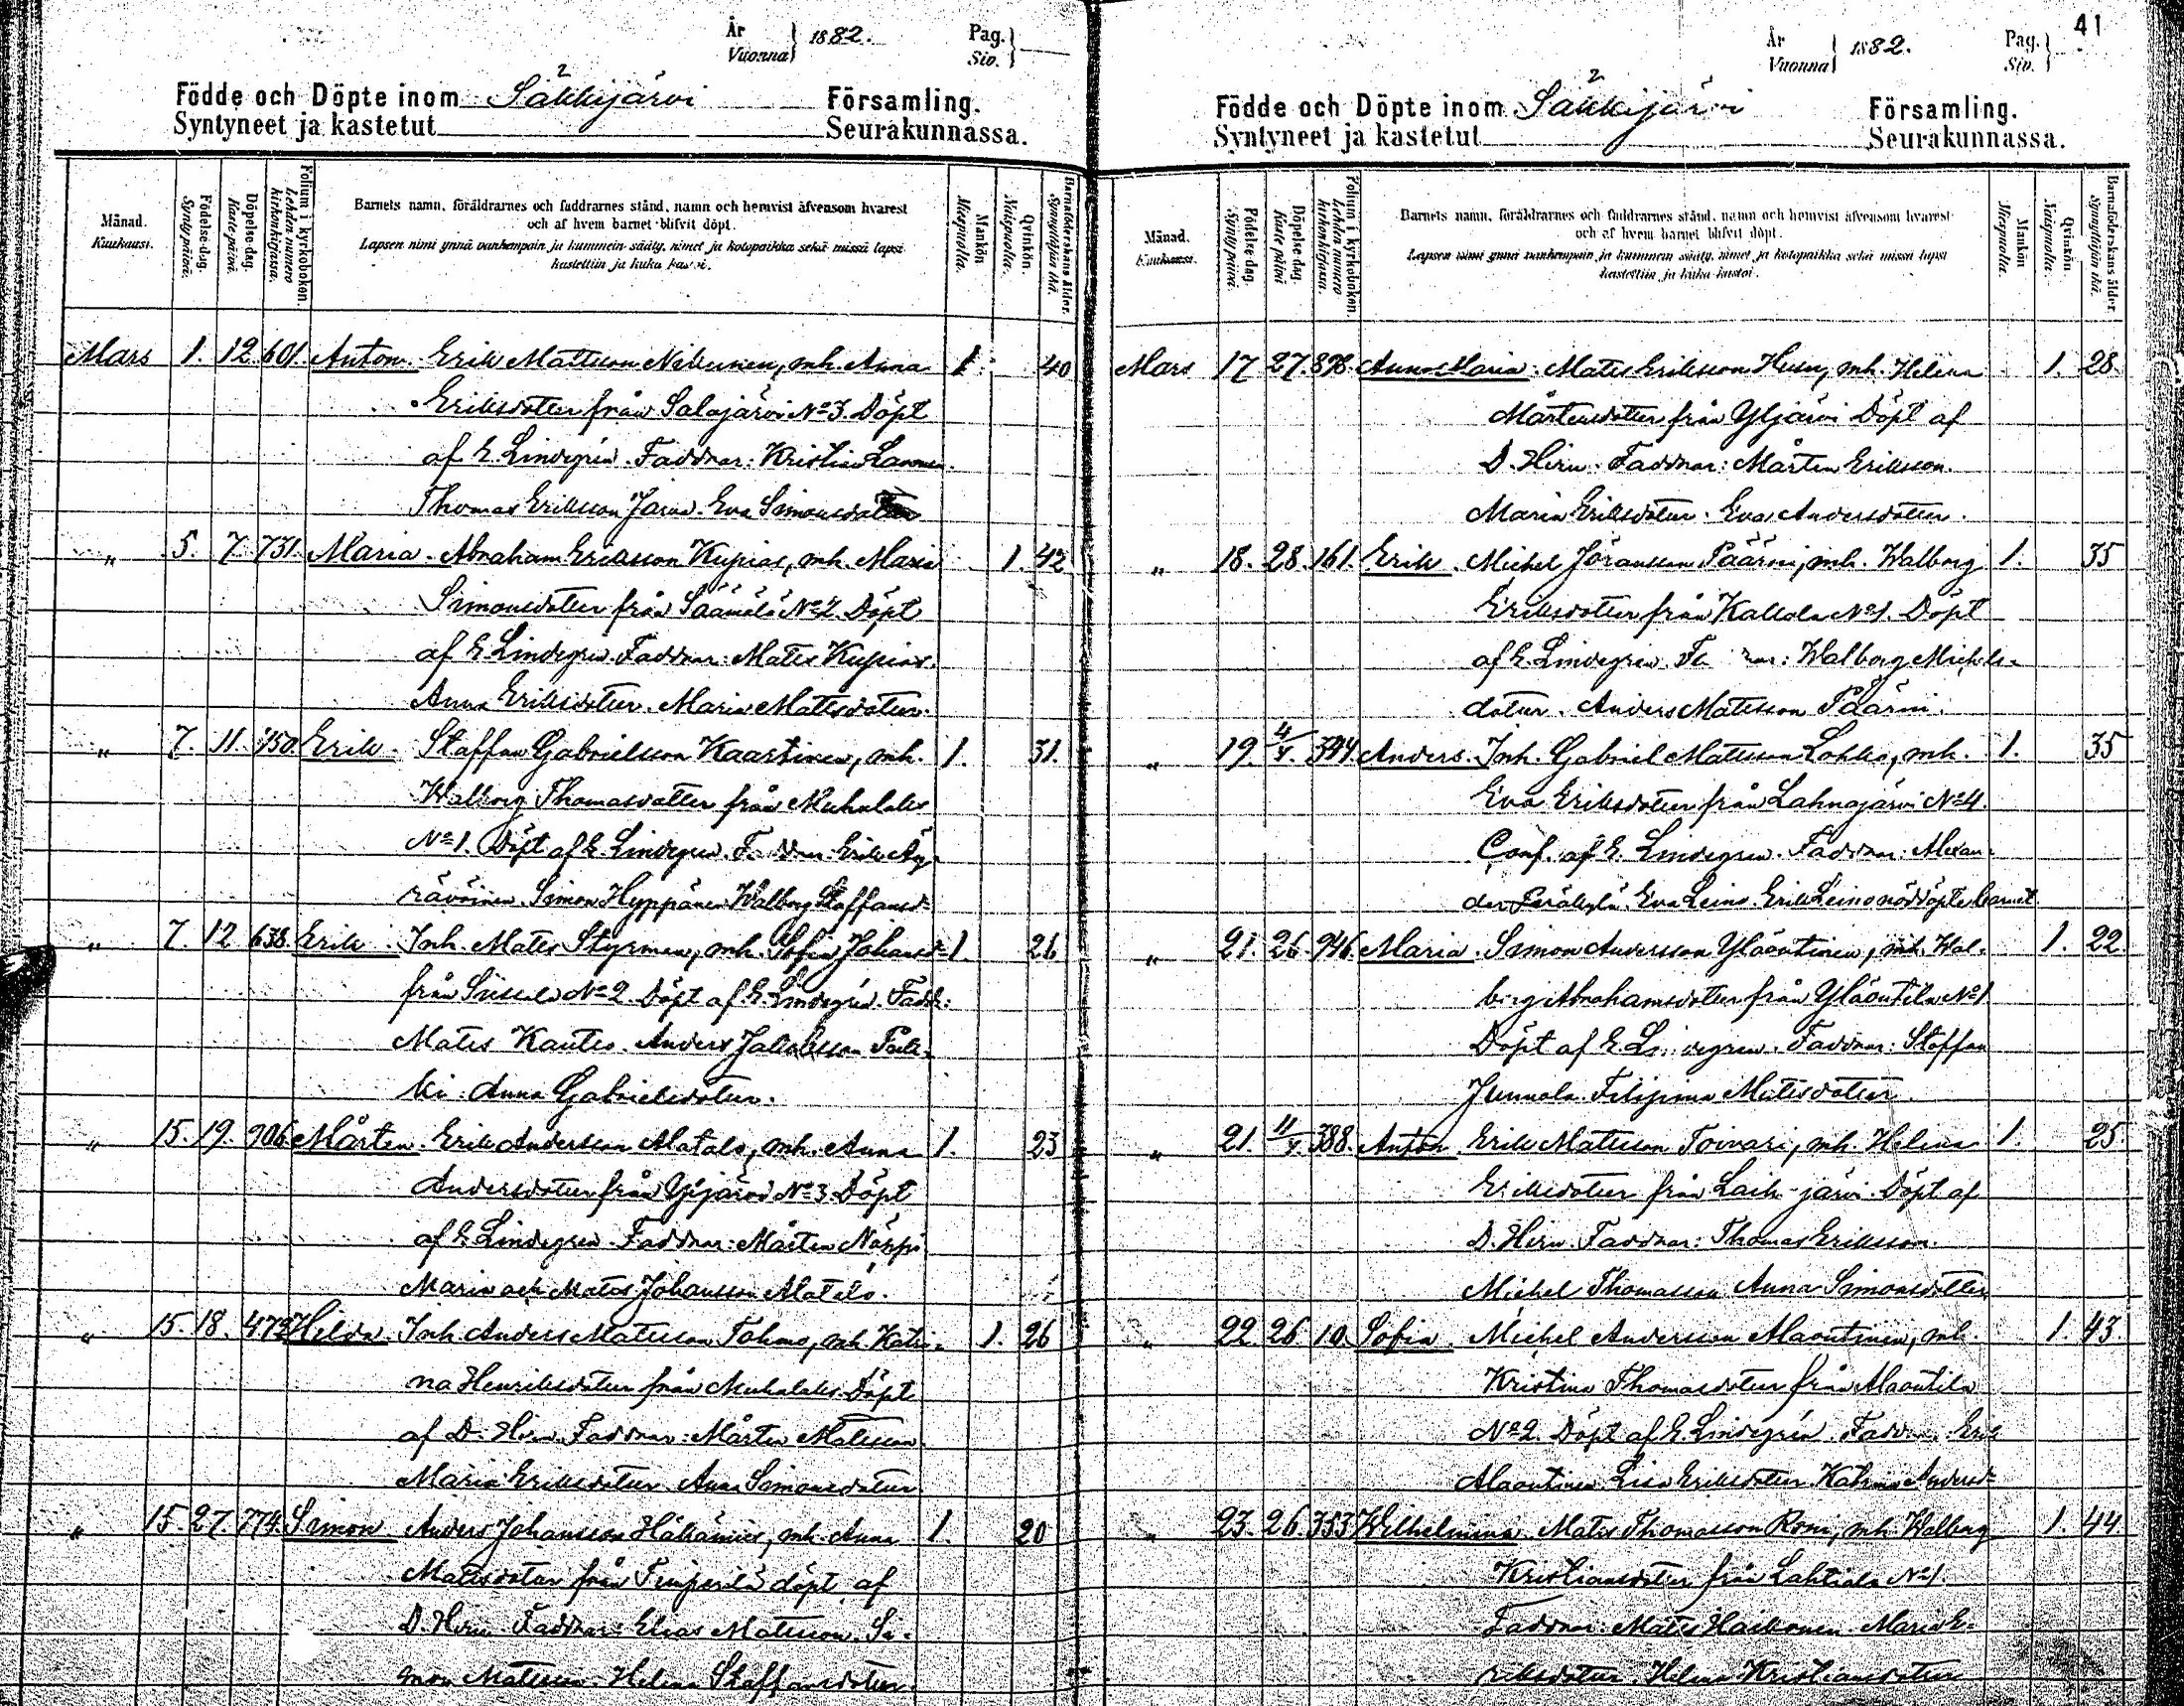 41
År
Vuonna
1882.
Pag.
Siv.
Födde och Döpte inom Säkkijärvi Församling.
2
Syntyneet ja kastetut Seurakunnassa.
Månad.
Kuukausi.
Födelse dag.
Synty päivä.
Döpelse dag.
Kaste päivä.
Folium i kyrkoboken.
Lehden numero kirkonkirjassa.
Barnets namn, föräldrarnes och faddrarnes stånd, namn och hemvist äfvensom hvarest
och af hvem barnet blifvit döpt.
Lapsen nimi ynnä vanhempain ja kummein sääty, nimet ja kotopaikka sekä missä lapsi
kastettiin ja kuka kastoi.
Mankön
Miespuolia.
Qvinkön.
Naispuolia.
Barnaföderskans ålder.
Synnyttäjän ikä.
Mars 1. 12. 601. Anton. Erik Mattsson Nikunen, mh. Anna 1. 40
Eriksdotter från Salajärvi No 3. Döpt
af E. Lindegrén. Faddrar: Kristian
Thomas Eriksson Järvi. Eva Simonsdotter
" 5. 7. 731. Maria. Abraham Eriksson Kupias, mh. Maria 1. 42
Simonsdotter från Säämälä No 2. Döpt
af E. Lindegrén. Faddrar: Matts Kupias.
Anna Eriksdotter. Maria Mattsdotter.
" 7. 11. 150. Erik. Staffan Gabrielsson Kaartinen, mh. 1. 31.
Walborg Thomasdotter från Muhulaks
No 1. Döpt af E. Lindegrén. Faddrar Erik Äy-
räväinen. Simon Hyppänen. Walborg Staffansd:
" 7. 12 638. Erik. Inh. Matts Styrman, mh. Sofia Johansd: 1. 26
från No 2. Döpt af E. Lindegrén. Fadd:
Matts Kauto. Anders Jakobsson
ki. Anna Gabrielsdotter.
" 15. 19. 906. Mårten. Erik Andersson Matala, mh. Anna 1. 23
Andersdotter från Yljärvi No 3. Döpt
af E. Lindegrén. Faddrar: Mårten Näppi
Maria och Matts Johansson Matala.
" 15. 18. 472 Hilda. Inh. Anders Mattsson Tohmo, mh. Katri- 1. 26
na Henriksdotter från Muhulaks. Döpt
af D. Hirn. Faddrar: Mårten Mattsson
Maria Eriksdotter. Anna Simonsdotter
" 15. 27. 774. Simon Anders Johansson mh. Anna 1. 20
Mattsdotter från döpt af
D. Hirn. Faddrar: Elias Mattsson. Si-
mon Mattsson. Helena Staffansdotter.
År
Vuonna
1882.
Pag.
Siv.
Födde och Döpte inom Säkkijärvi Församling.
2
Syntyneet ja kastetut Seurakunnassa.
Månad.
Kuukausi.
Födelse dag.
Synty päivä.
Döpelse dag.
Kaste päivä
Folium i kyrkoboken.
Lehden numero kirkonkirjassa.
Barnets namn, föräldrarnes och faddrarnes stånd, namn och hemvist äfvensom hvarest
och af hvem barnet blifvit döpt.
Lapsen nimi ynnä vanhempain ja kummein sääty, nimet ja kotopaikka sekä missä lapsi
kastettiin ja kuka kastoi.
Mankön
Miespuolia.
Qvinkön.
Naispuolia.
Barnaföderskans ålder.
Synnyttäjän ikä.
Mars 17 27. 878. Anna Maria. Matts Eriksson Husu, mh. Helena 1. 28.
Mårtensdotter från Yljärvi Döpt af
D. Hirn. Faddrar: Mårten Eriksson.
Maria Eriksdotter. Eva Andersdotter.
" 18. 28. 161. Erik. Michel Jöransson Päärni, mh. Walborg 1. 35
Eriksdotter från Kallola No 1. Döpt
af E. Lindegrén. Fa rar: Walborg Michels-
dotter. Anders Mattsson Päärni.
" 19. 4/4. 394. Anders. Inh. Gabriel Mattsson Lohko, mh. 1. 35
Eva Eriksdotter från Lahnajärvi No 4.
Conf. af E. Lindegrén. Faddrar: Alexan-
der Peräkylä. Eva Leino. Erik Leino nöddöpte barnet
" 21. 26. 946. Maria. Simon Andersson Yläoutinen, mh. Wal- 1. 22.
borg Abrahamsdotter från Yläoutila No 1
Döpt af E. Li degrén. Faddrar: Staffan
Junnola. Filipina Mattsdotter.
" 21. 11/4. 388. Anton Erik Mattsson Toivari, mh. Helena 1. 25.
Eriksdotter från Laih-järvi. Döpt af
D. Hirn. Faddrar: Thomas Eriksson.
Michel Thomasson Anna Simonsdotter
" 22. 26. 10. Sofia. Michel Andersson Alaoutinen, mh. 1. 43.
Kristina Thomasdotter från Alaoutila
No 2. Döpt af E. Lindegrén. Faddrar: Erik
Alaoutinen. Lisa Eriksdotter. Katrina Andersd:
" 23. 26. 353 Wilhelmina. Matts Thomasson Roni, mh. Walborg 1. 44
Kristiansdotter från Lahtiala No 1
Faddrar: Matts Haikonen. Maria E-
riksdotter. Helena Kristiansdotter